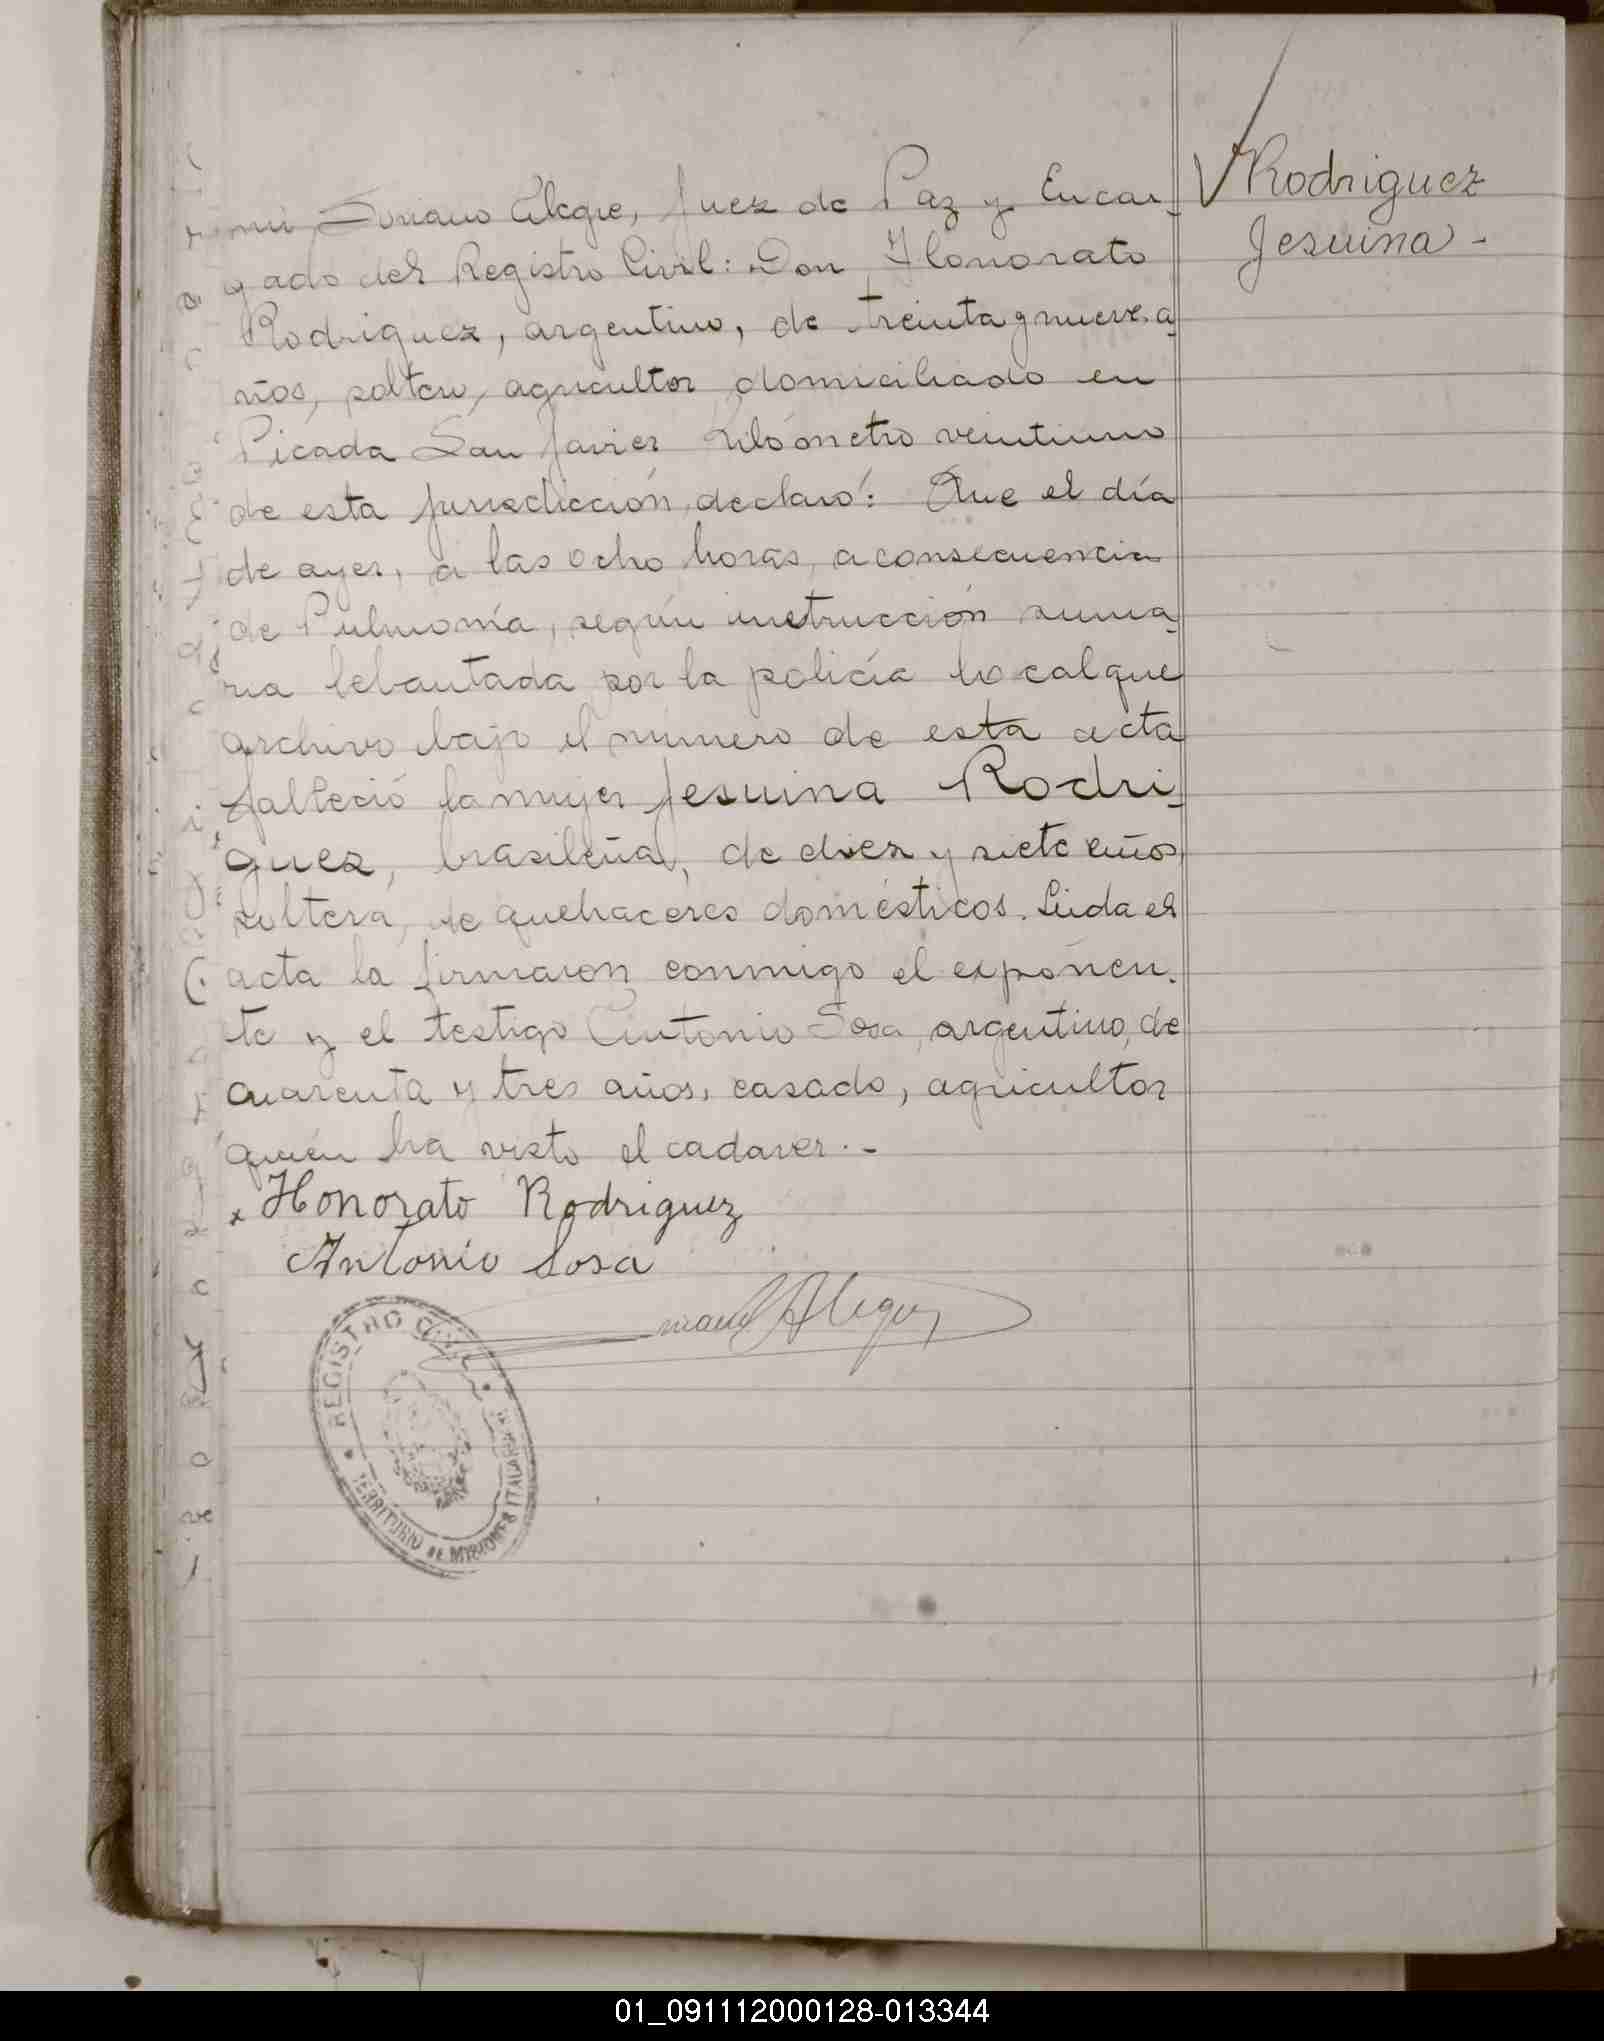 mi Soriano Alegre, Juez de Paz y Encar-
gado del Registro Civil: Don Honorato
Rodriguez, argentino, de treinta y nueve a-
ños, soltero, agricultor domiciliado en
Picada San Javier Kilómetro veintiuno
de esta jurisdicción, declaró: Que el día
de ayer, a las ocho horas, a consecuencia
de Pulmonía, según instrucción suma-
ria lebantada por la policía local que
archivo bajo el número de esta acta
falleció la mujer Jesuina Rodri-
guez, brasileña, de diez y siete años,
soltera, de quehaceres domésticos. Leida el
acta la firmaron conmigo el exponen-
te y el testigo Antonio Sosa, argentino, de
cuarenta y tres años, casado, agricultor
quién ha visto el cadaver.-
x Honorato Rodriguez
Antonio Sosa
Alegre
REGISTRO CIVIL
TERRITORIO DE MISIONES
Rodriguez
Jesuina -
01_091112000128-013344